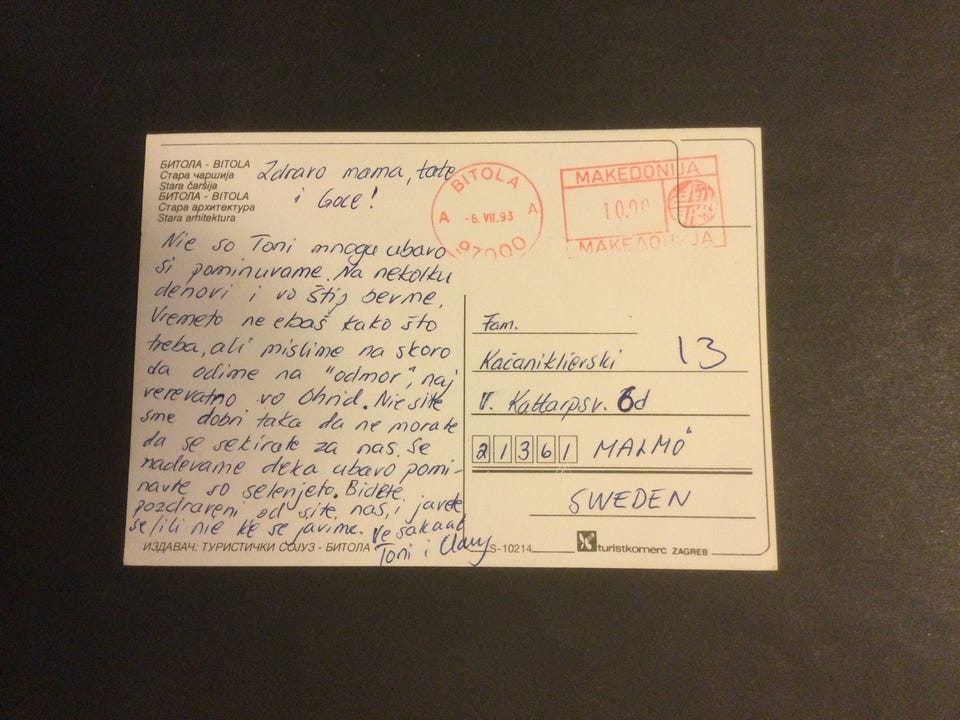 БИТОЛА - BITOLA
Стара чаршија
Stara čaršija
БИТОЛА - BITOLA
Стара архитектура
Stara arhitektura
Zdravo mama, tate
i Goce!
Nie so Toni mnogu ubavo
si pominuvame. Na nekolku
denovi i vo Štip bevme.
Vremeto ne ebaš kako što
treba, ali mislime na skoro
da odime na "odmor", naj
verevatno vo Ohrid. Nie site
sme dobri taka da ne morate
da se sekirate za nas. Se
nadevame deka ubavo pomi-
navte so selenjeto. Bidete
pozdraveni od site nas, i javete
se ili nie ḱe se javime. Ve sakaat
Toni i
ИЗДАВАЧ: ТУРИСТИЧКИ СОЈУЗ - БИТОЛА
BITOLA
A -6. VII. 93 A
97000
MAKEDONIJA
10.00
МАКЕДОНИЈА
Fam.
Kačaniklierski 13
V. Kattarpsv. 6d
21361 MALMÖ
SWEDEN
S-10214
turistkomerc ZAGREB